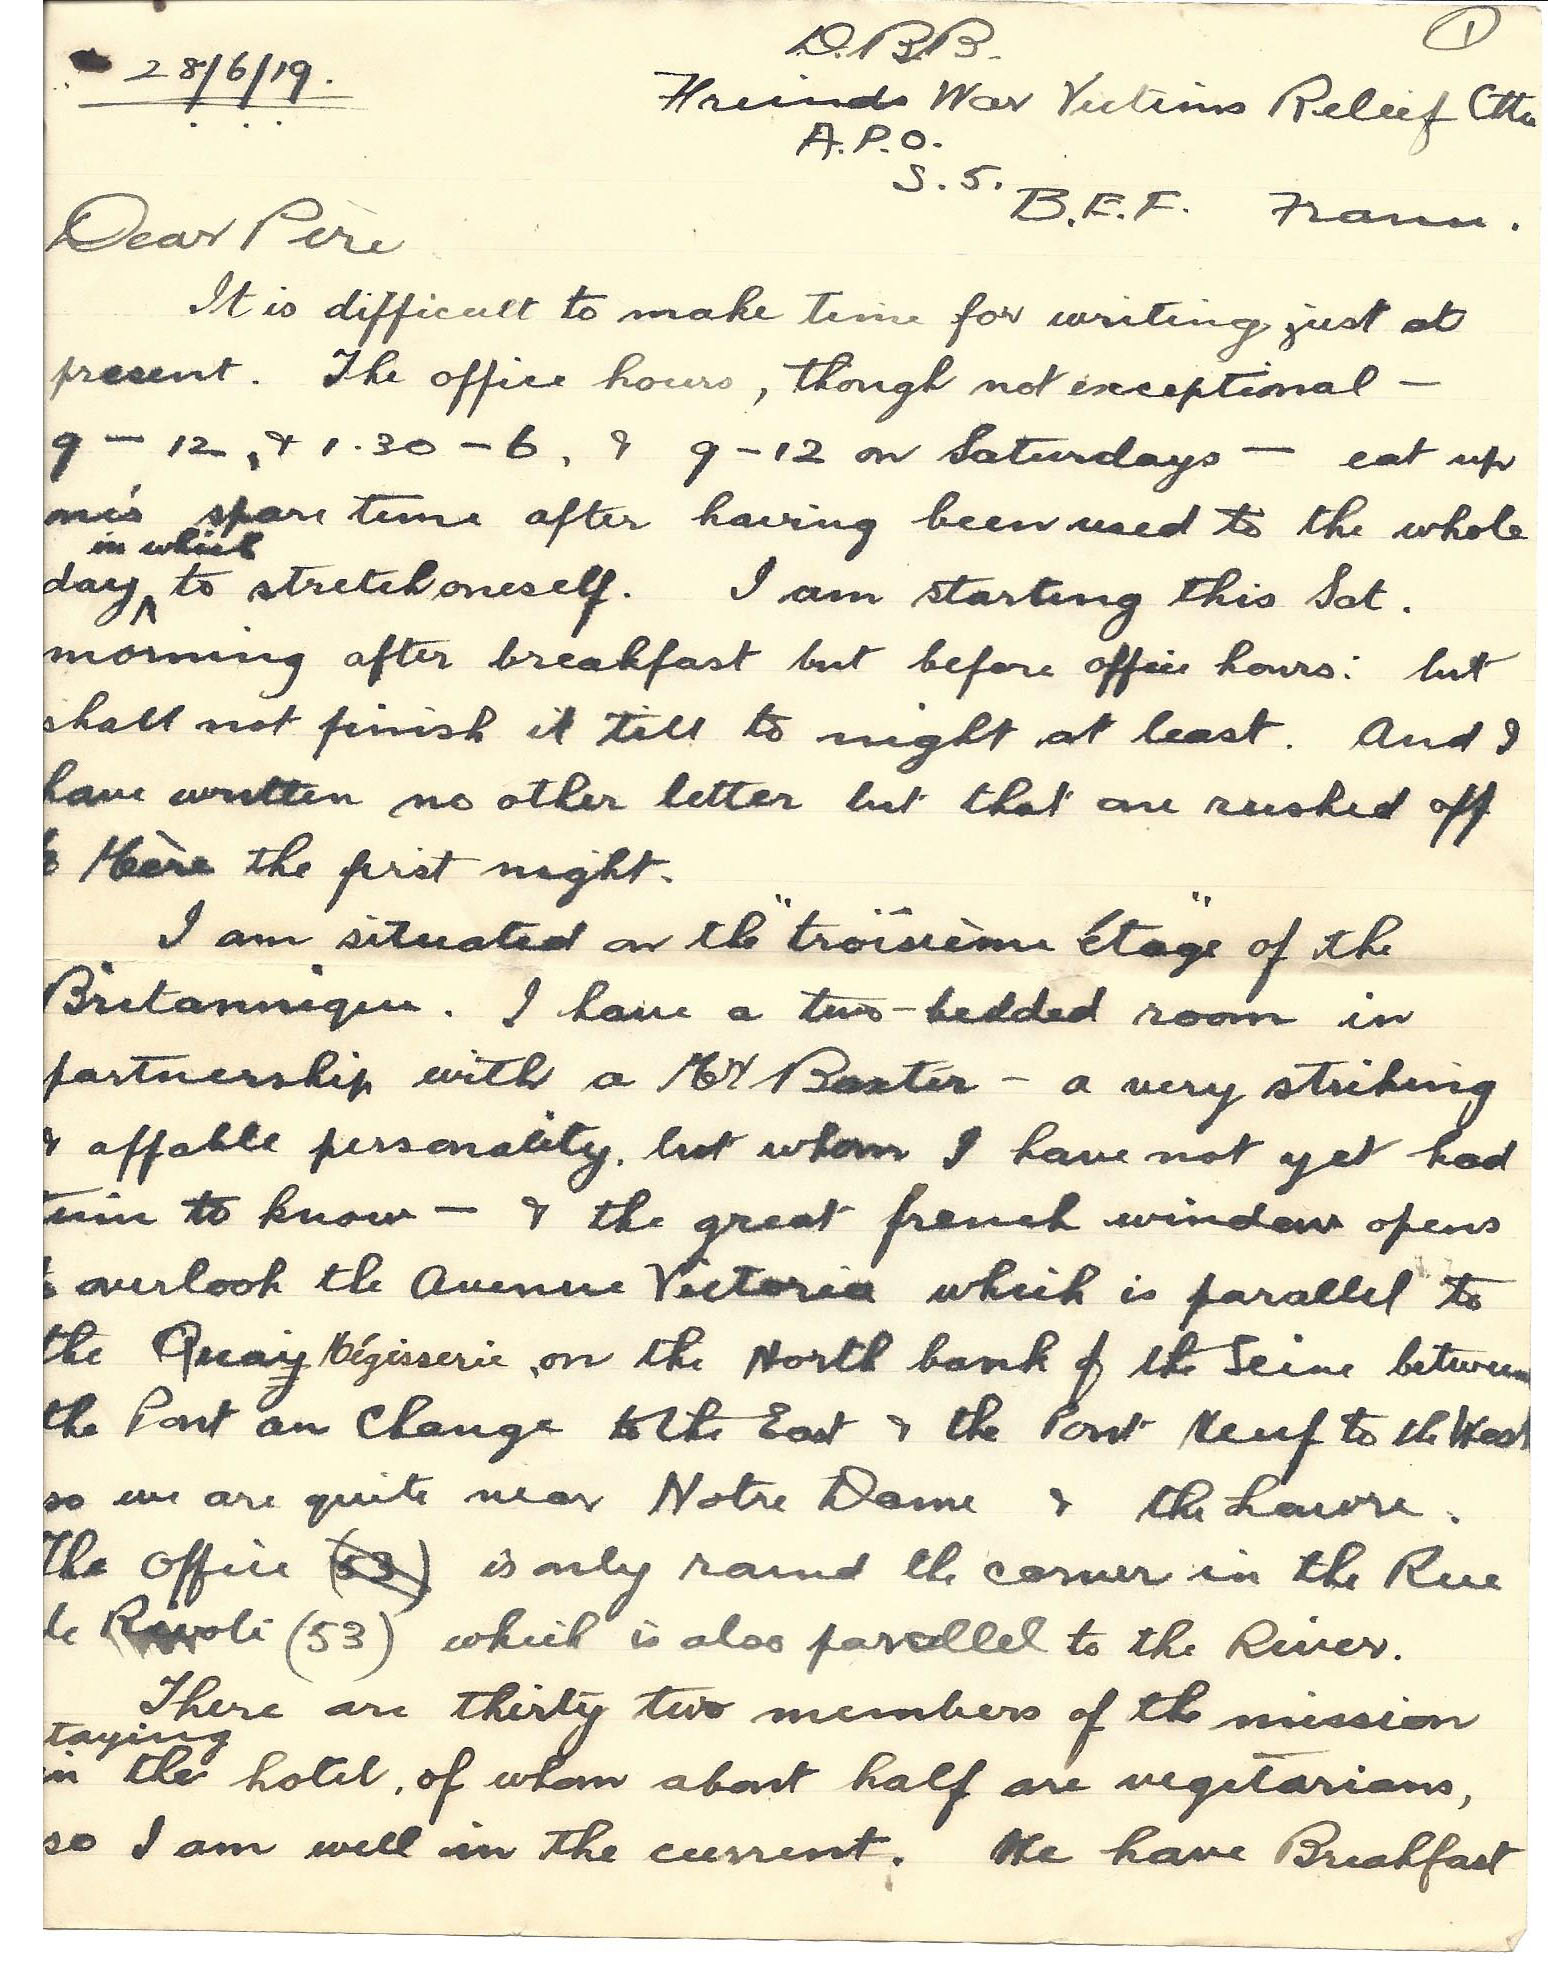 ①
28/6/19.
D.B.B.
Freinds War Victims Relief Cttee
A.P.O.
S.5.
B.E.F. France.
Dear Père
It is difficult to make time for writing just at
present. The office hours, though not exceptional —
9 — 12, & 1.30 — 6, & 9 - 12 on Saturdays — eat up
one's spare time after having been used to the whole
in which
day ^ to stretch oneself. I am starting this Sat.
morning after breakfast but before office hours: but
shall not finish it till to night at least. And I
have written no other letter but that one rushed off
to Mère the first night.
I am situated on the "troisième étage" of the
Britannique. I have a two-bedded room in
partnership with a Mr Baxter — a very striking
& affable personality, but whom I have not yet had
time to know — & the great french window opens
to overlook the Avenue Victoria which is parallel to
the Quay Mégisserie, on the North bank of the Seine between
the Pont au Change to the East & the Pont Neuf to the West
so we are quite near Notre Dame & the Louvre.
The office (53) is only round the corner in the Rue
de Rivoli (53) which is also parallel to the River.
There are thirty two members of the mission
staying
in the hotel, of whom about half are vegetarians,
so I am well in the current. We have Breakfast